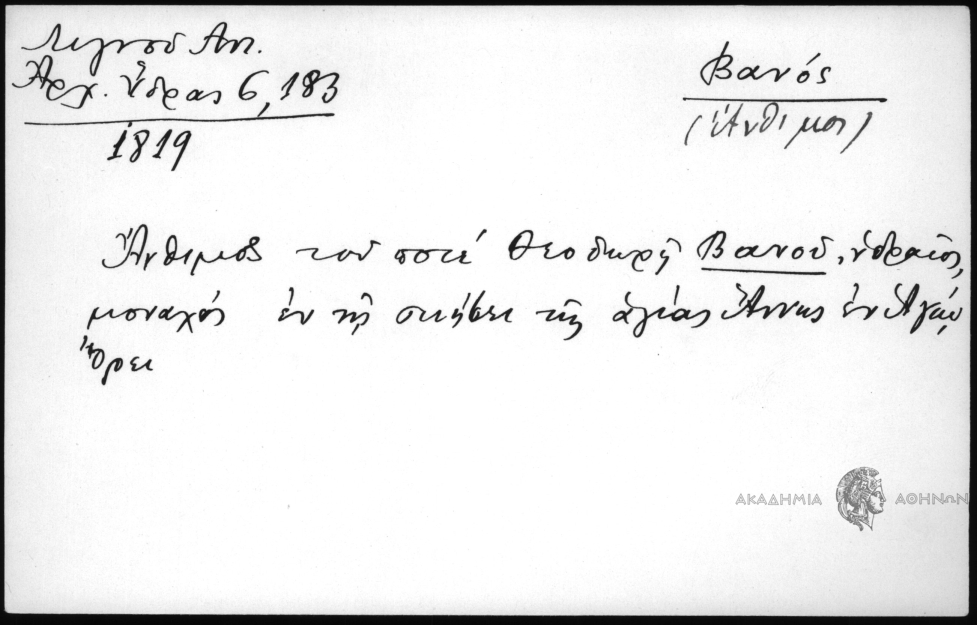 Λιγνοῦ Αντ.
Ἀρχ. Ὕδρας 6, 183
1819
Βανός
(Ἄνθιμος)
Ἄνθιμος τοῦ ποτέ Θεοδωρῆ Βανοῦ, ὑδραῖος,
μοναχός ἐν τῇ σκήτει τῆς ἁγίας Ἄννης ἐν Ἁγίῳ
Ὄρει
ΑΚΑΔΗΜΙΑ ΑΘΗΝΩΝ